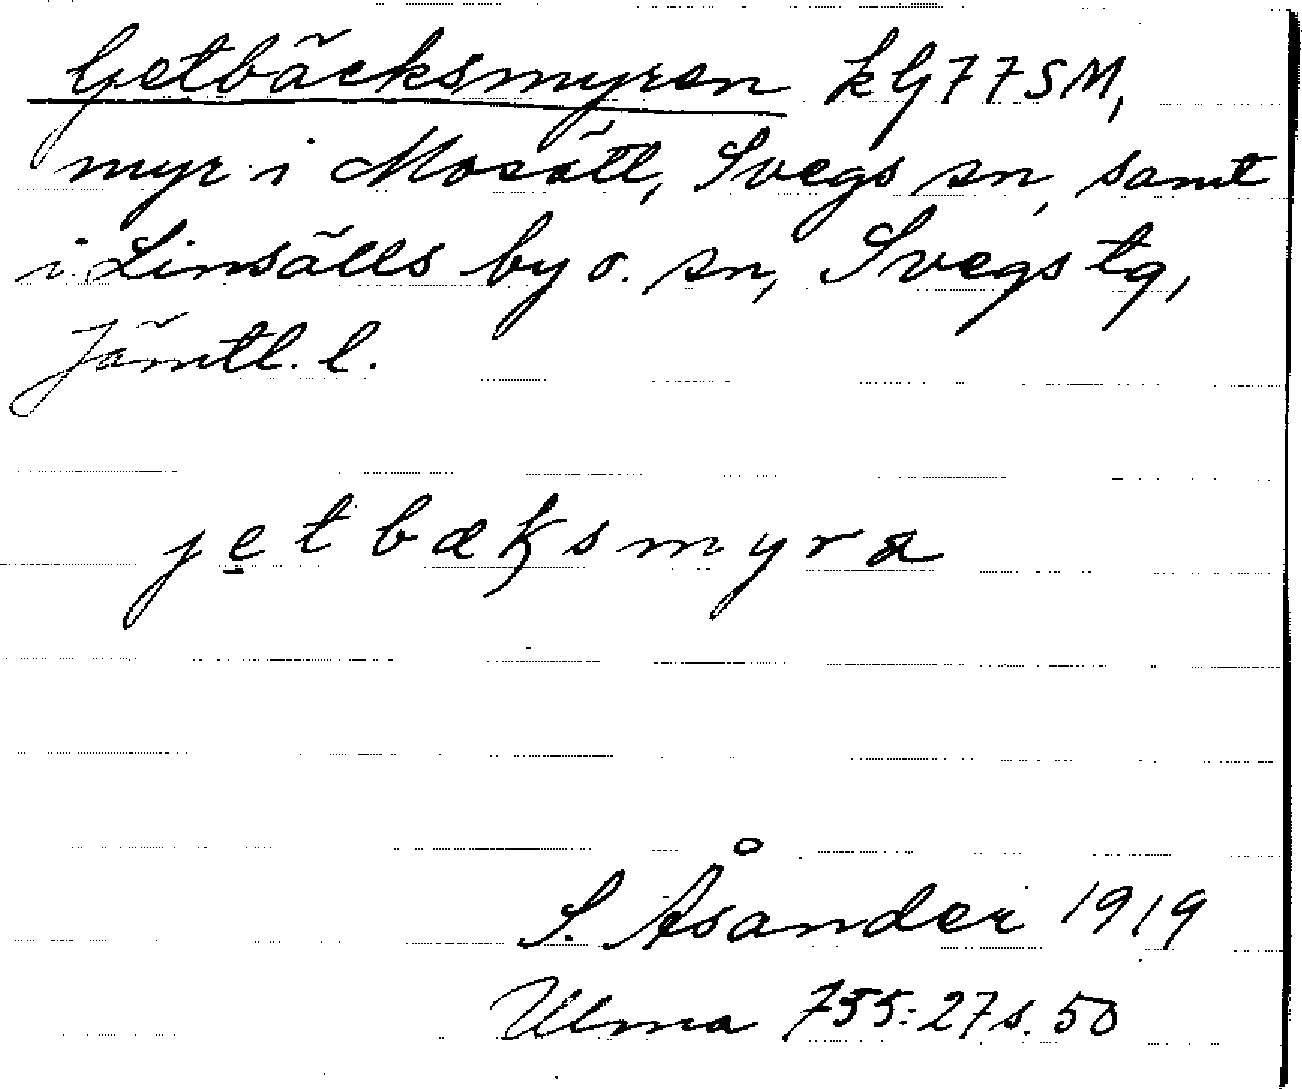 Getbäcksmyren kG77SM,
myr i Mosätt, Svegs sn, samt
i Linsälls by o. sn, Svegs tg,
Jämtl. l.
jetbæksmyra
S. Åsander 1919
Ulma 755:27 s. 50